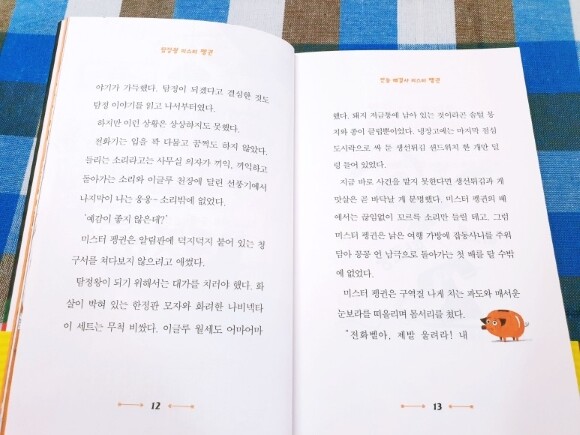 탐정왕 미스터 펭귄
야기가 가득했다. 탐정이 되겠다고 결심한 것도
탐정 이야기를 읽고 나서부터였다.
하지만 이런 상황은 상상하지도 못했다.
전화기는 입을 꾹 다물고 꿈쩍도 하지 않았다.
들리는 소리라고는 사무실 의자가 끼익, 끼익하고
돌아가는 소리와 이글루 천장에 달린 선풍기에서
나지막이 나는 웅웅- 소리밖에 없었다.
'예감이 좋지 않은데?'
미스터 펭귄은 알림판에 덕지덕지 붙어 있는 청
구서를 쳐다보지 않으려고 애썼다.
탐정왕이 되기 위해서는 대가를 치러야 했다. 화
살이 박혀 있는 한정판 모자와 화려한 나비넥타
이 세트는 무척 비쌌다. 이글루 월세도 어마어마
12
만능 해결사 미스터 펭귄
했다. 돼지 저금통에 남아 있는 것이라곤 솜털 뭉
치와 종이 클립뿐이었다. 냉장고에는 마지막 점심
도시락으로 싸 둔 생선튀김 샌드위치 한 개만 덜
렁 들어 있었다.
지금 바로 사건을 맡지 못한다면 생선튀김과 게
맛살은 곧 바닥날 게 분명했다. 미스터 펭귄의 배
에서는 끊임없이 꼬르륵 소리만 들릴 테고, 그럼
미스터 펭귄은 낡은 여행 가방에 잡동사니를 주워
담아 꽁꽁 언 남극으로 돌아가는 첫 배를 탈 수밖
에 없었다.
미스터 펭귄은 구역질 나게 치는 파도와 매서운
눈보라를 떠올리며 몸서리를 쳤다.
"전화벨아, 제발 울려라! 내
13